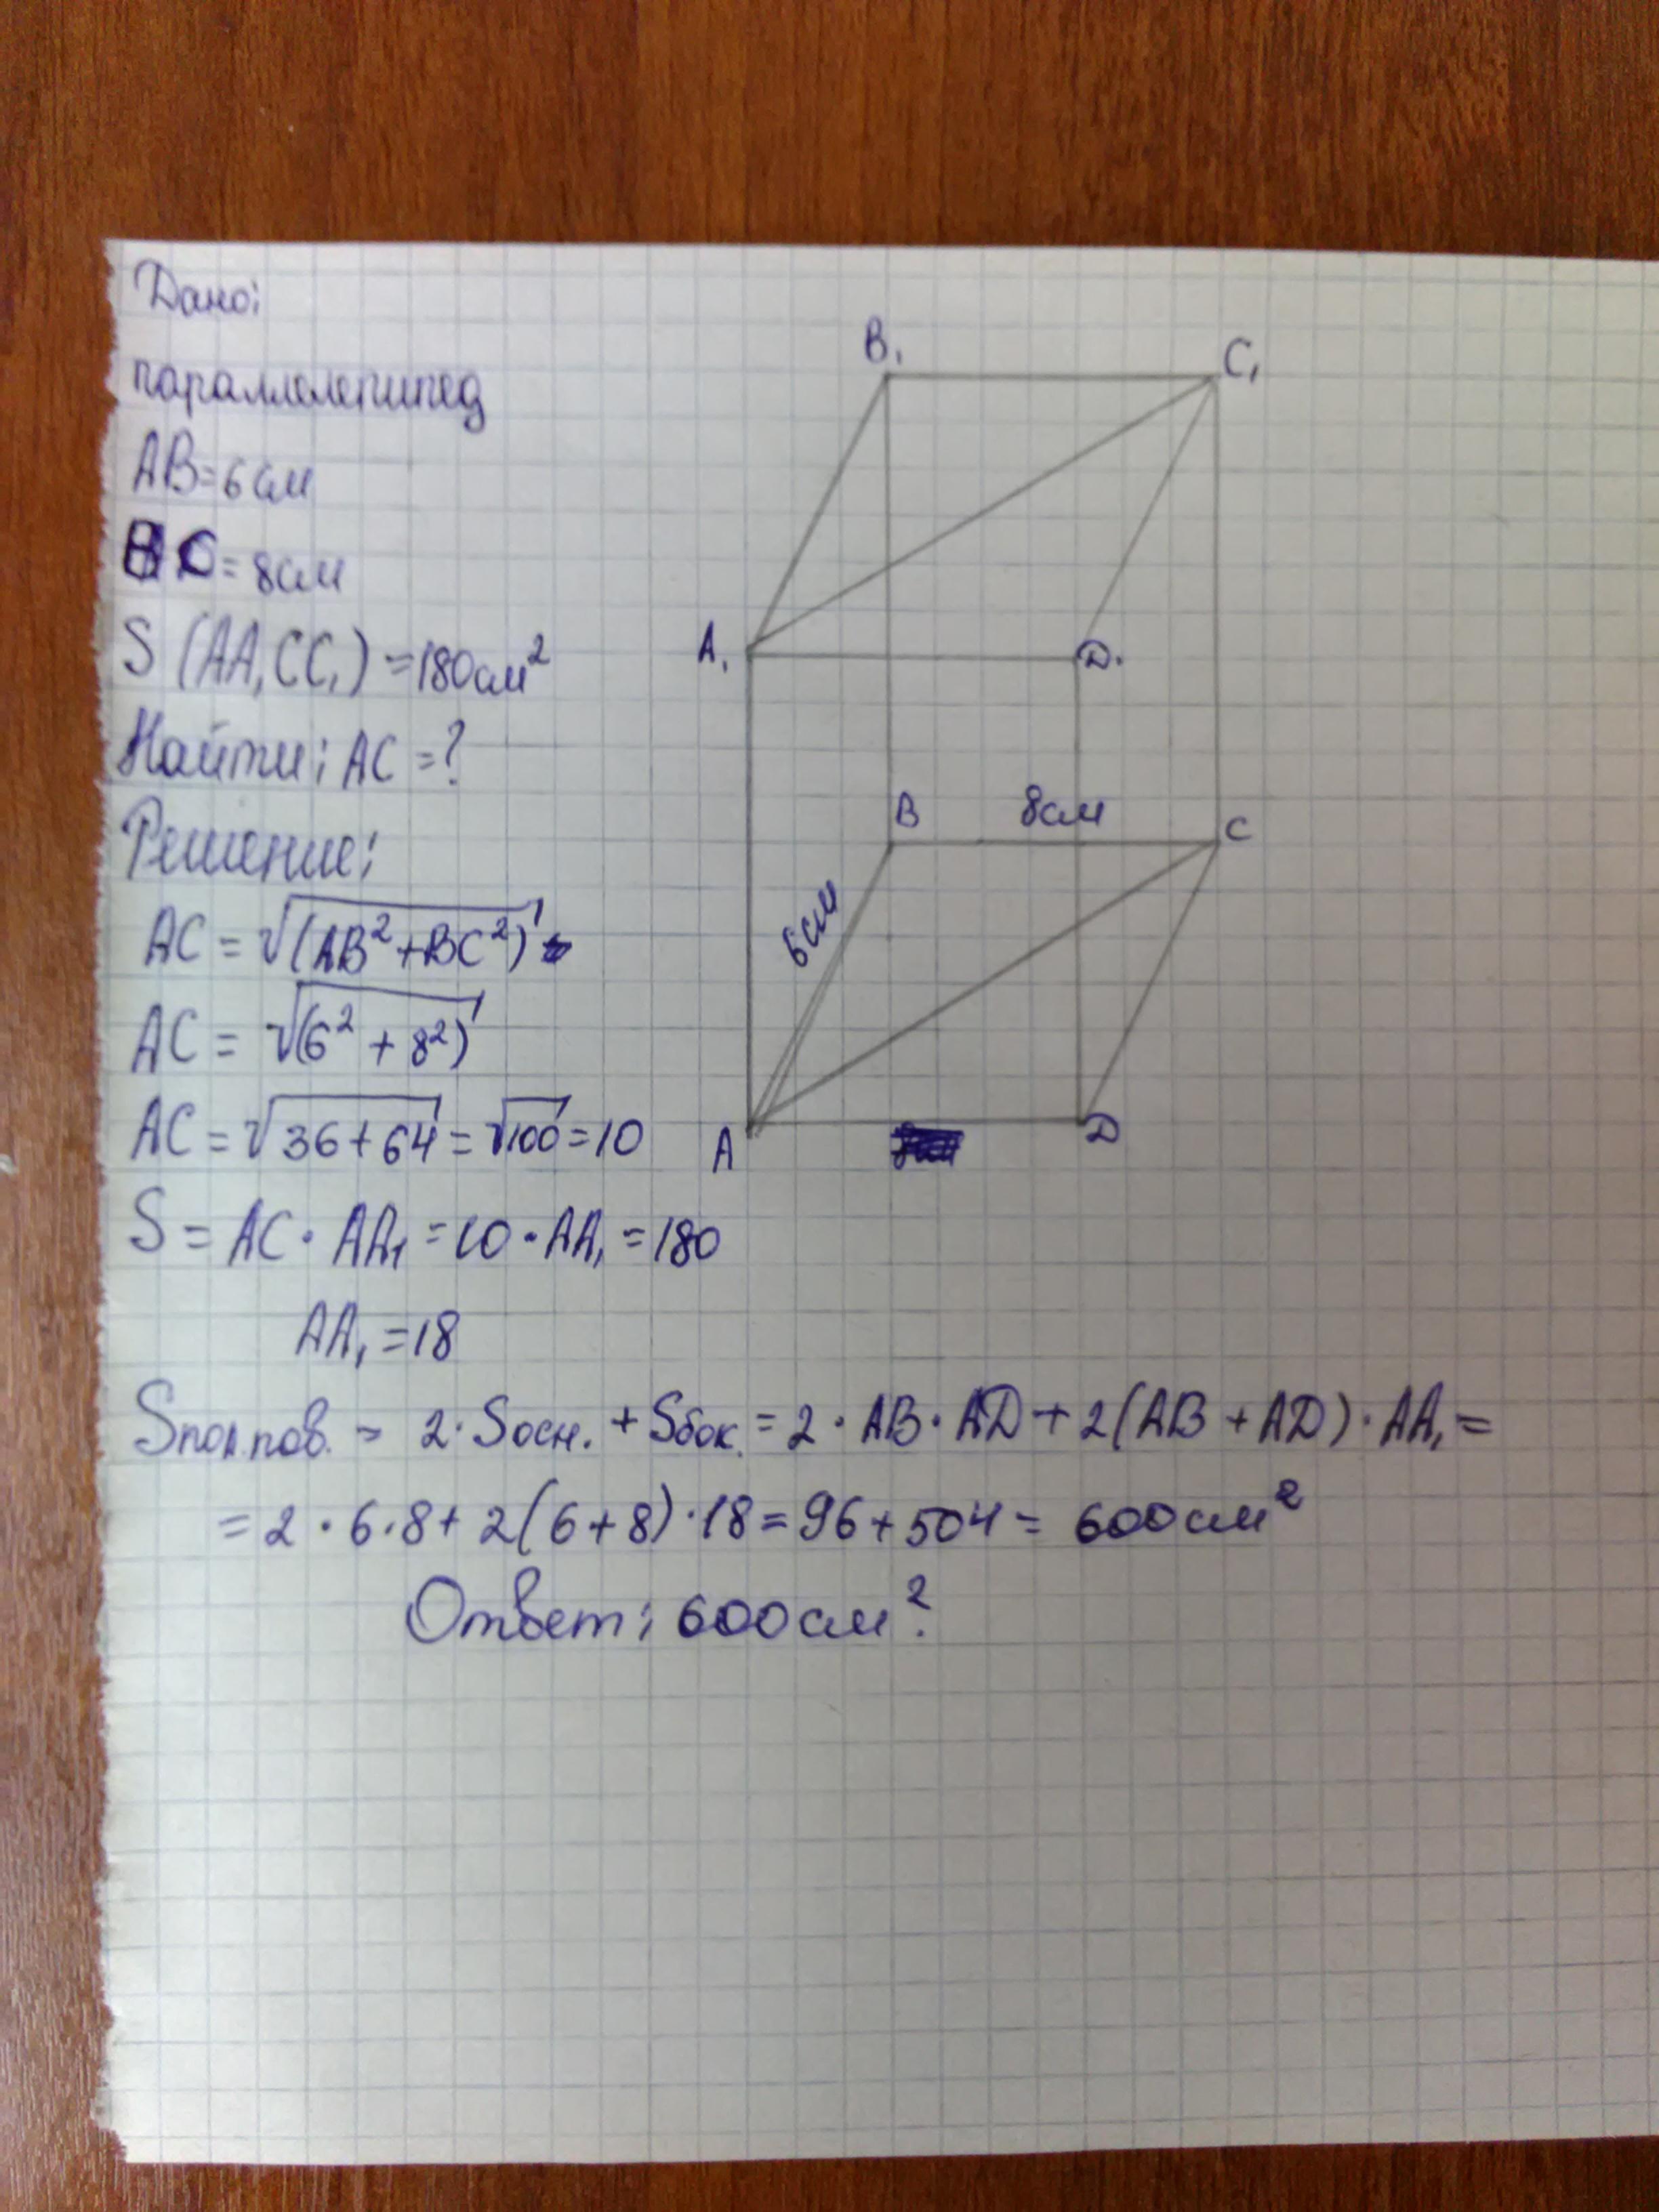 Дано:
параллелепипед
AB=6см
BC=8см
S(AA₁CC₁)=180см²
Найти: AC=?
Решение:
AC=√(AB²+BC²)
AC=√(6²+8²)
AC=√36+64=√100=10
S=AC·AA₁=10·AA₁=180
AA₁=18
Sпол.пов.=2·Sосн.+Sбок.=2·AB·AD+2(AB+AD)·AA₁=
=2·6·8+2(6+8)·18=96+504=600см²
Ответ: 600см².
B₁
C₁
A₁
D₁
B
8см
C
6см
A
D